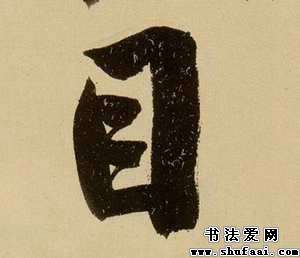 目
书法爱网
www.shufaai.com